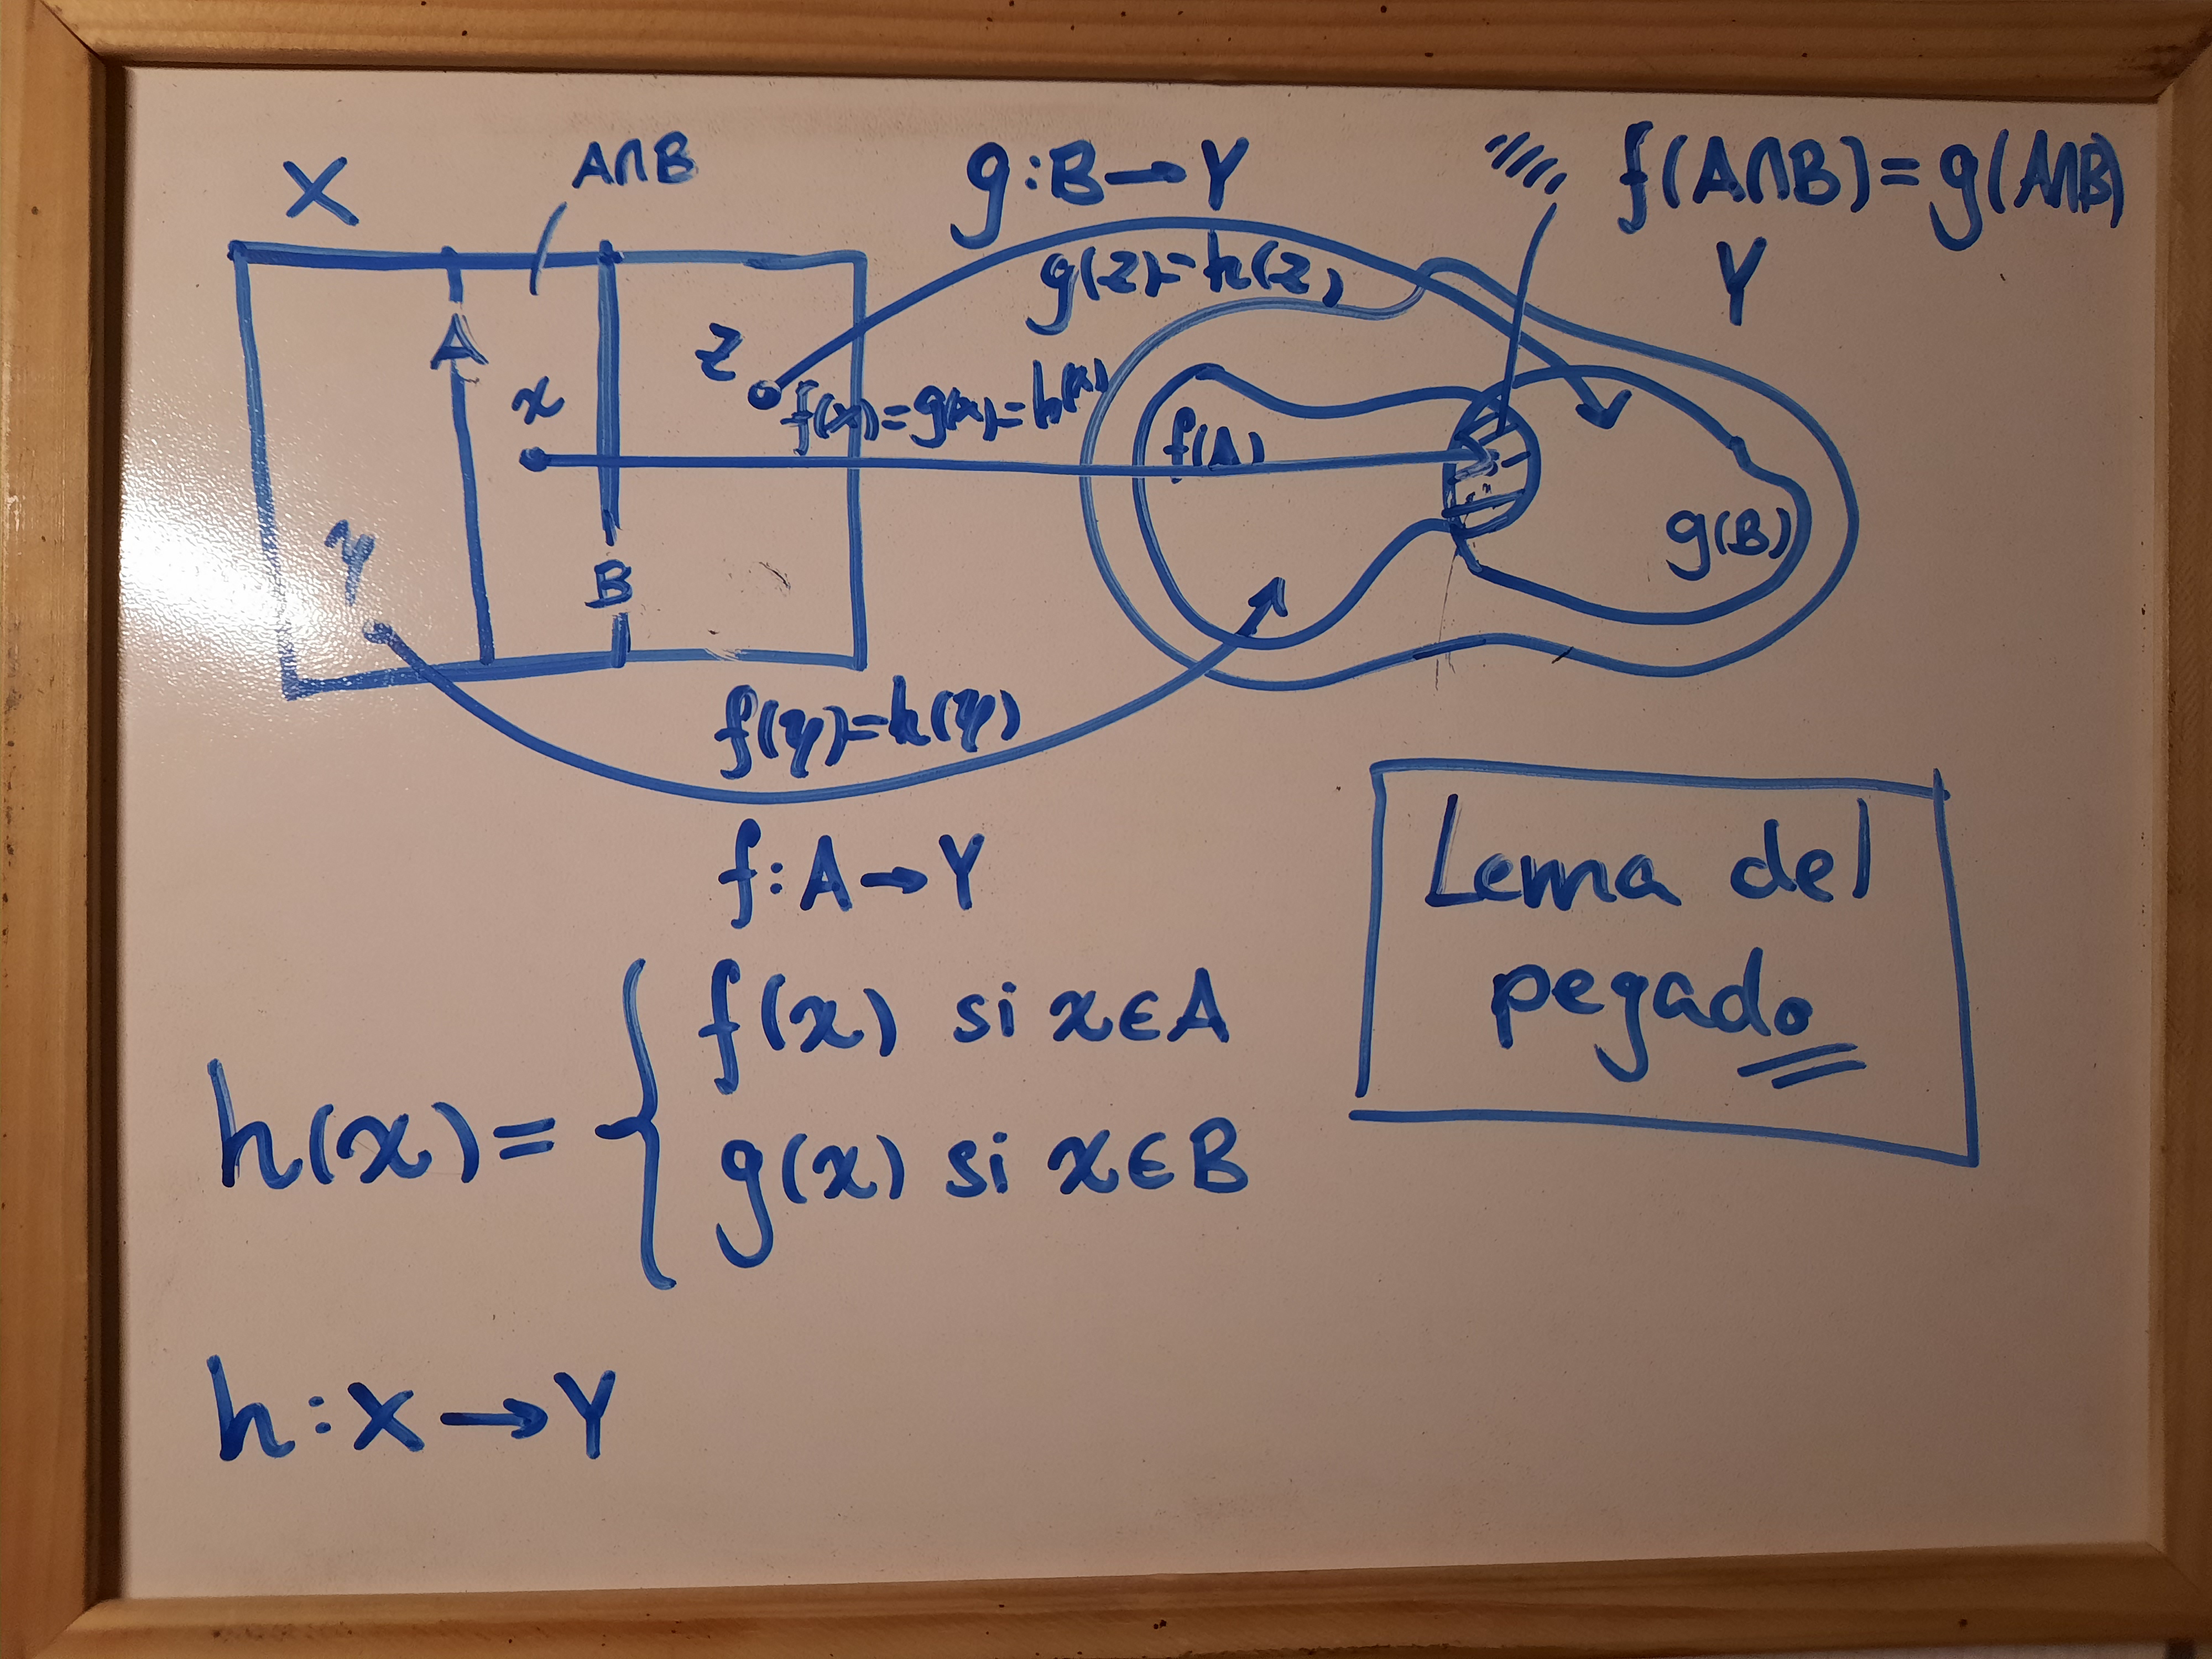 X
A∩B
g:B→Y
f(A∩B)=g(A∩B)
Y
g(z)=h(z)
A
z
x
f(x)=g(x)=h(x)
f(A)
y
g(B)
B
f(y)=h(y)
f:A→Y
Lema del
pegado
h(x)= { f(x) si x∈A
g(x) si x∈B
h:X→Y